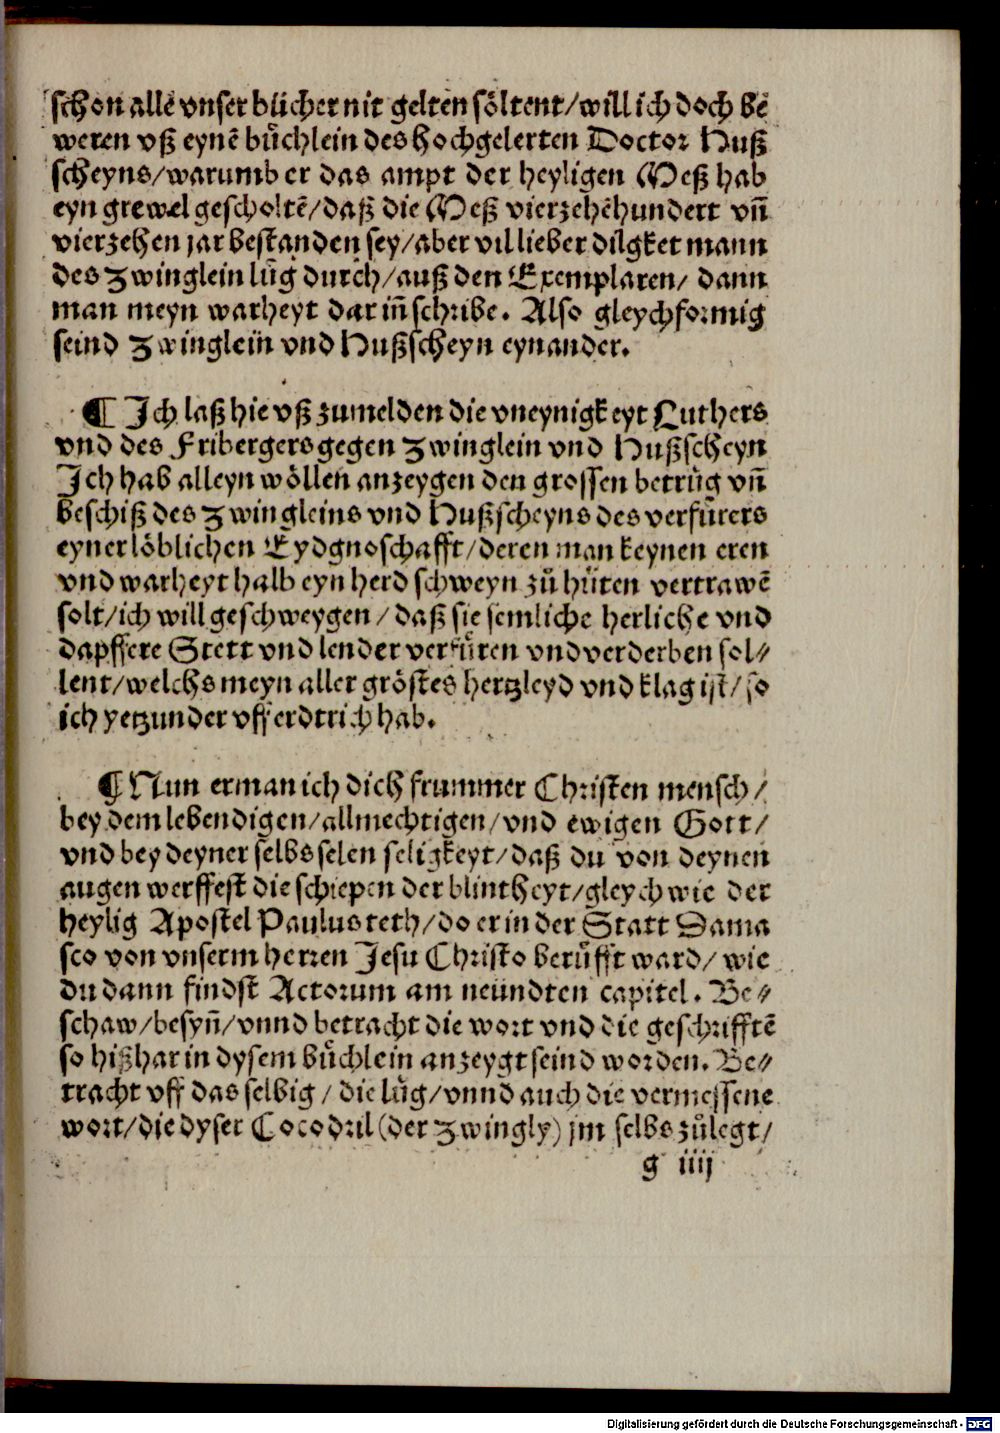 schon alle vnser bücher nit gelten söltent/will ich doch bē
weren vß eynē bůchlein des hochgelerten Doctor Huß
scheyns/warumb er das ampt der heyligen Meß hab
eyn grewel gescholtē/daß die Meß vierzehēhundert vñ
vierzehen jar bestanden sey/aber vil lieber dilgket mann
des Zwinglein lůg durch/auß den Exemplaren/ dann
man meyn warheyt dar iñ schribe. Also gleychformig
seind Zwinglein vnd Hußscheyn eynander.

¶ Ich laß hie vß zumelden die vneynigkeyt Luthers
vnd des Fribergers gegen Zwinglein vnd Hußscheyn
Ich hab alleyn wöllen anzeygen den grossen betrůg vñ
beschiß des Zwingleins vnd Hußscheyns des verfůrers
eyner löblichen Eydgnoschafft/deren man keynen eren
vnd warheyt halb eyn herd schweyn zů hůten vertrawē
solt/ich will geschweygen/ daß sie semliche herliche vnd
dapffere Stett vnd lender verfůren vnd verderben sol⸗
lent/welchs meyn aller gröstes hertzleyd vnd klag ist/so
ich yetzunder vff erdtrich hab.

¶ Nun erman ich dich frummer Christen mensch/
bey dem lebendigen/allmechtigen/vnd ewigen Gott/
vnd bey deyner selbs selen seligkeyt/daß du von deynen
augen werffest die schiepen der blintheyt/gleych wie der
heylig Apostel Paulus teth/do er in der Statt Dama
sco von vnserm herren Jesu Christo berůfft ward/ wie
du dann findst Actorum am neündten capitel. Be⸗
schaw/besyñ/vnnd betracht die wort vnd die geschrifftē
so hißhar in dysem bůchlein anzeygt seind worden. Be⸗
tracht vff das selbig/ die lůg/vnnd auch die vermessene
wort/die dyser Cocodril (der Zwingly) jm selbs zůlegt/
g iiij
Digitalisierung gefördert durch die Deutsche Forschungsgemeinschaft - DFG